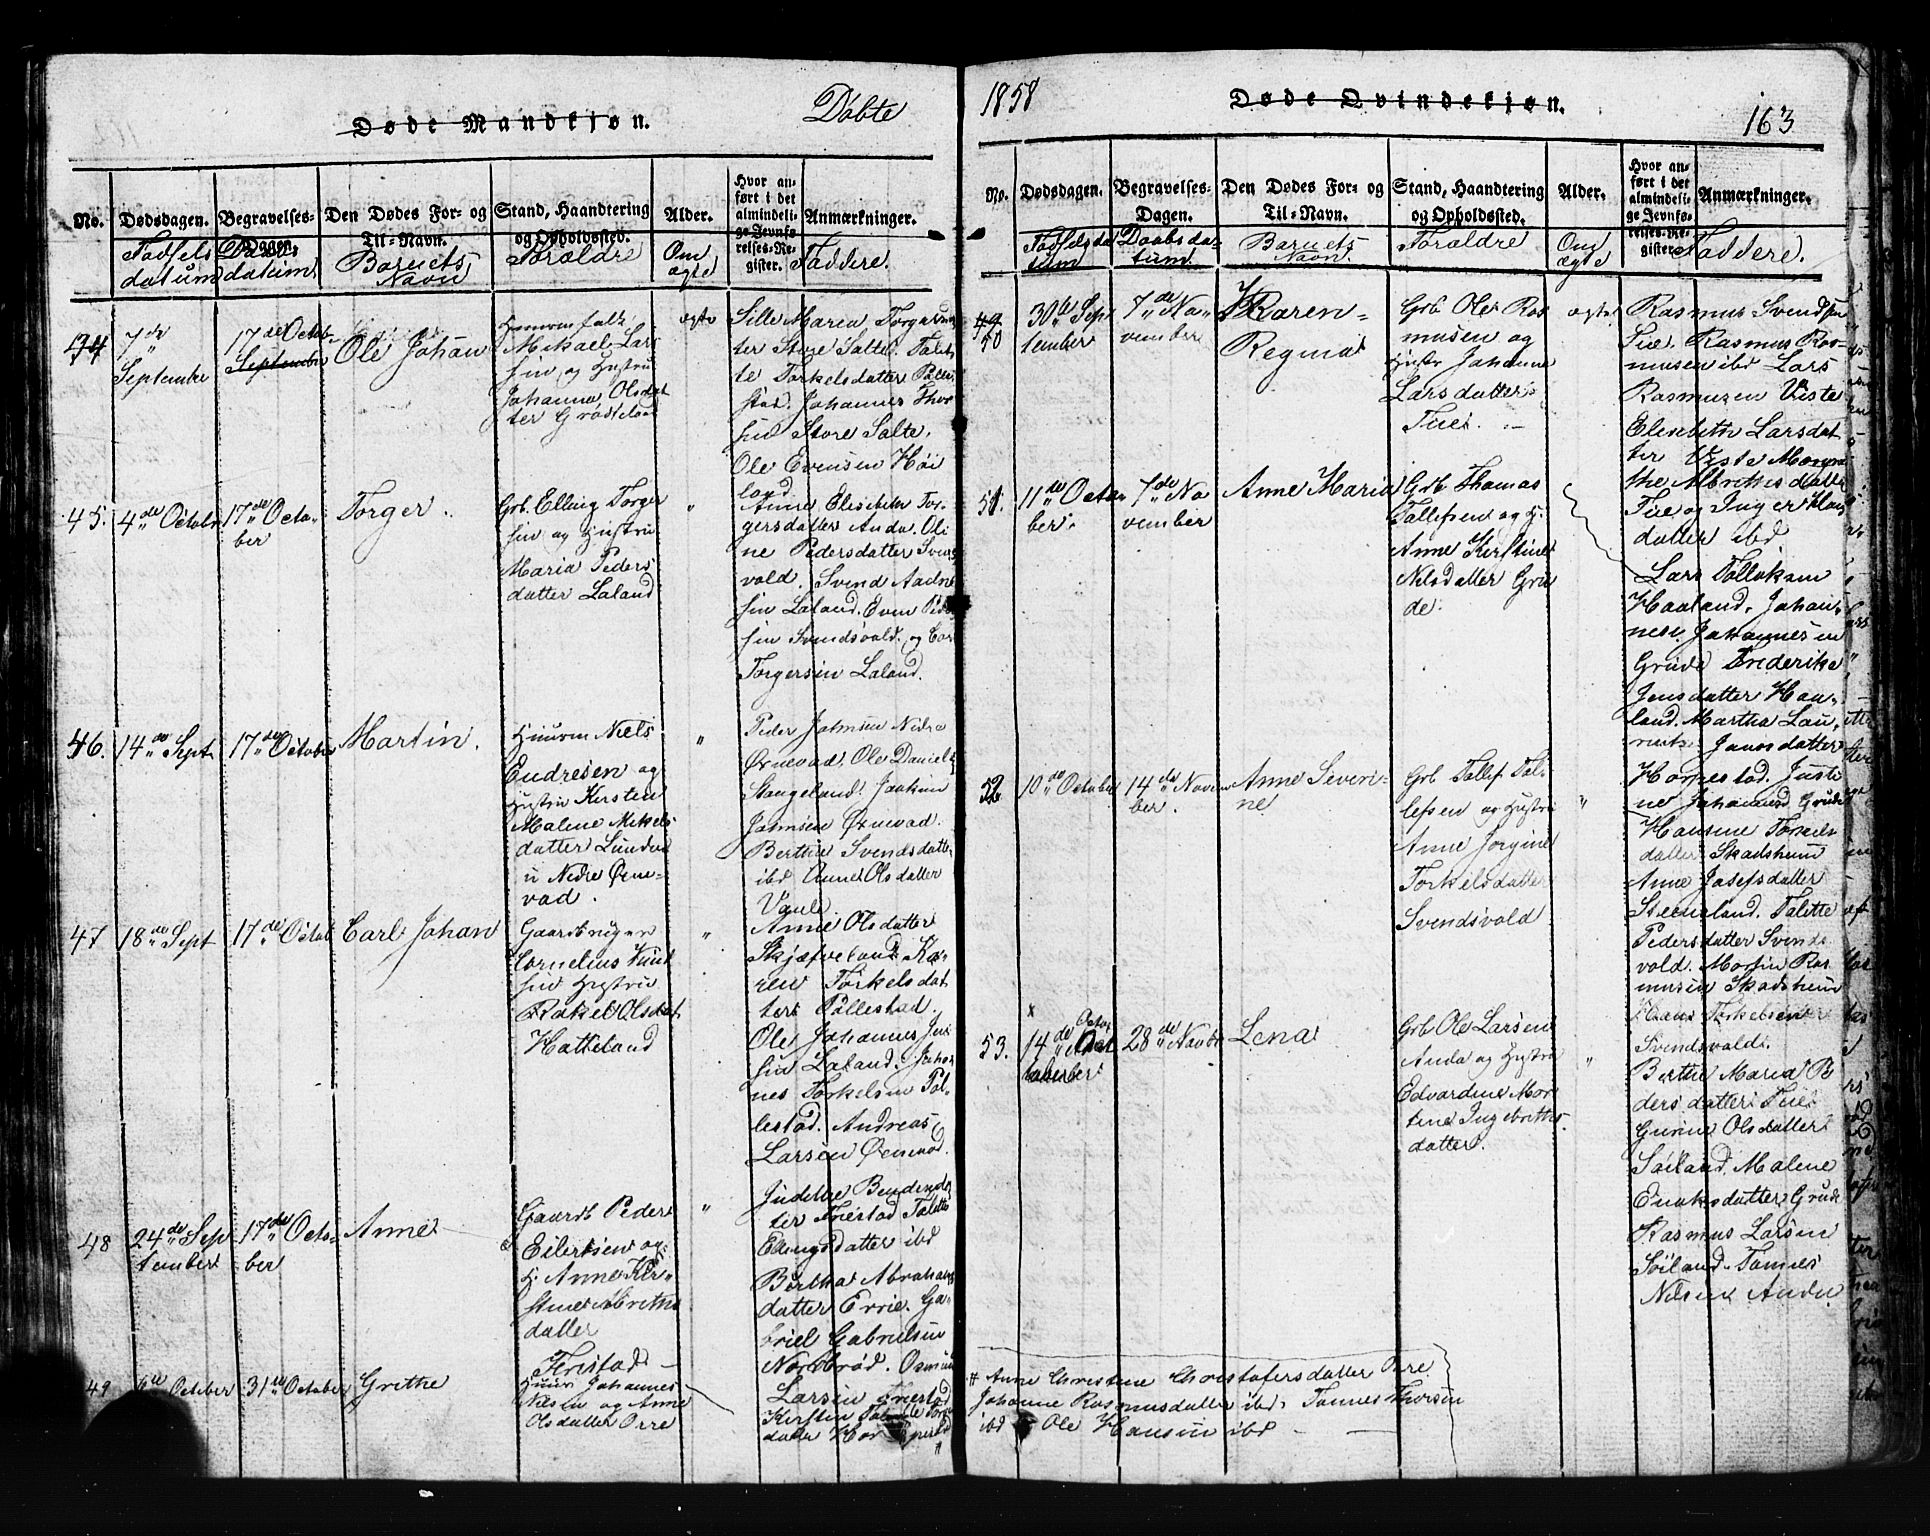 Døde Mandkjøn.
Døbte
No.
Dødsdagen.
Begravelses-
Dagen.
Den Dødes For- og
Til-Navn.
Stand, Haandtering
og Opholdssted.
Alder.
Hvor an-
ført i det
almindeli-
ge Jevnfø-
relses-Re-
gister.
Anmærkninger.
Fødsels
datum
Daabs
datum
Barnets
Navn
Forældre
Om
ægte
Faddere.
7de
September
17de Octob
September
Ole Johan
Mikael Lar
sen og Hustru
Johanna Olsdat
ter
ægte
Sille Maria Torgersdat
ter Store Salte. Talet
te Torkelsdatter Polle
stad. Johannes Thor
sen Store Salte.
Ole Evensen Høi
land.
45.
4de Octobr
17de Octo-
ber
Torger.
Grb. Elling Torger
sen og Hustru
Maria Peders
datter Laland
"
Anne Elisebeth Tor-
gersdatter Anda. Oli
ne Pedersdatter Svens
vold. Svend Aadne
sen Laland. Even Peder
sen Svendsvold. og
Torgersen Laland.
46.
14de Sept
17de October
Martin.
Huusm Niels
Endresen og
Hustru Kirsten
Malene Mikels
datter Lunden
u Nedre Ørne-
vad.
"
Peder Jahnsen Nedre
Ørnevad. Ole Daniels
Stangeland. Joakim
Jahnsen Ørnevad.
Berthe Svendsdatter
ibd Anne Olsdatter
47
18de Sept
17de Octob
Carl Johan
Gaardbruger
Cornelius Knud
sen Hustru
Rakel Olsdat
Hatteland
"
Anne Olsdatter
Skjæfveland. Ka-
ren Torkelsdat
ter Pollestad.
Ole Johannes Jen
sen Laland. Johan
nes Torkelsen Pol-
lestad. Andreas
Larsen Ørnevad.
48
24de Sep
tember
17de Octo-
ber
Anne
Gaardb Peder
Eilertsen og
H. Anne Kir-
stine Abrths
datter
Frestad
"
ter Friestad Talette
Ellingsdatter ibd
Bertha Abrahams
datter Errie. Ga-
briel Gabrielsen
Nordbrød. Osmund
Larsen Friestad
49
October
31te October
Grethe
Huusm Johannes
Nilsen og Anne
Olsdatter Orre
Kirsten
datter
#
1858
Døde Qvindekjøn.
163
No.
Dødsdagen.
Begravelses-
Dagen.
Den Dødes For- og
Til-Navn.
Stand, Haandtering
og Opholdssted.
Alder.
Hvor an-
ført i det
almindeli-
ge Jevnfø-
relses-Re-
gister.
Anmærkninger.
Fødselsda
tum
Daabsda-
tum.
Barnets
Navn.
Forældre
Om
ægte
Faddere.
49
50
30te Sep
tember
7de No
vember
Karen
Regina
Grb Ole Ras
musen og
Hustr Johanne
Larsdatter
Tue.
ægte
Rasmus Svendsen
Tue. Rasmus Ras-
musen ibd Lars
Rasmusen Viste
Elisebeth Larsdat
ter Viste Margre
the Albrettsdatter
Tue og Inger Klaus
datter ibd
51.
11de Octo
ber.
7de No
vember
Anne Maria
Grb Thomas
Tollefsen og H.
Anne Kirstine
Nilsdatter Gru
de.
Lars Tollaksen
Haaland. Johan-
nes Johannesen
Grude Frederike
Jensdatter Haa-
land. Martha Lau-
datter
Hognestad. Justi
ne Johannesd Grude
52
10de October
14de Novem
ber.
Anne Severi-
ne
Grb Tollef Tol-
lefsen og Hustru
Anne Jorgine
Torkelsdatter
Svendsvold
"
Hansine
datter Skadsheim
Anne Josefsdatter
Steeneland. Talette
Pedersdatter Svends
vold. Martin Ras
musen Skadsheim
Hans Torkelsen
Svendsvold.
x
53.
14de
Octo
28de Novbr
Lena
Grb Ole Larsen
Anda og Hustru
Edvardine Mor
tine Ingebrithts
datter.
"
Berthe Maria Pe
dersdatter Tue.
Gurine Olsdatter
Søiland. Malene
Enoksdatter Grude
Rasmus Larsen
Søiland. Tønnes
Nilsen Anda
# Anne Christine Christofersdatter Orre
Johanne Rasmusdatter ibd. Tønnes Thorsen
ibd Ole Hansen ibd